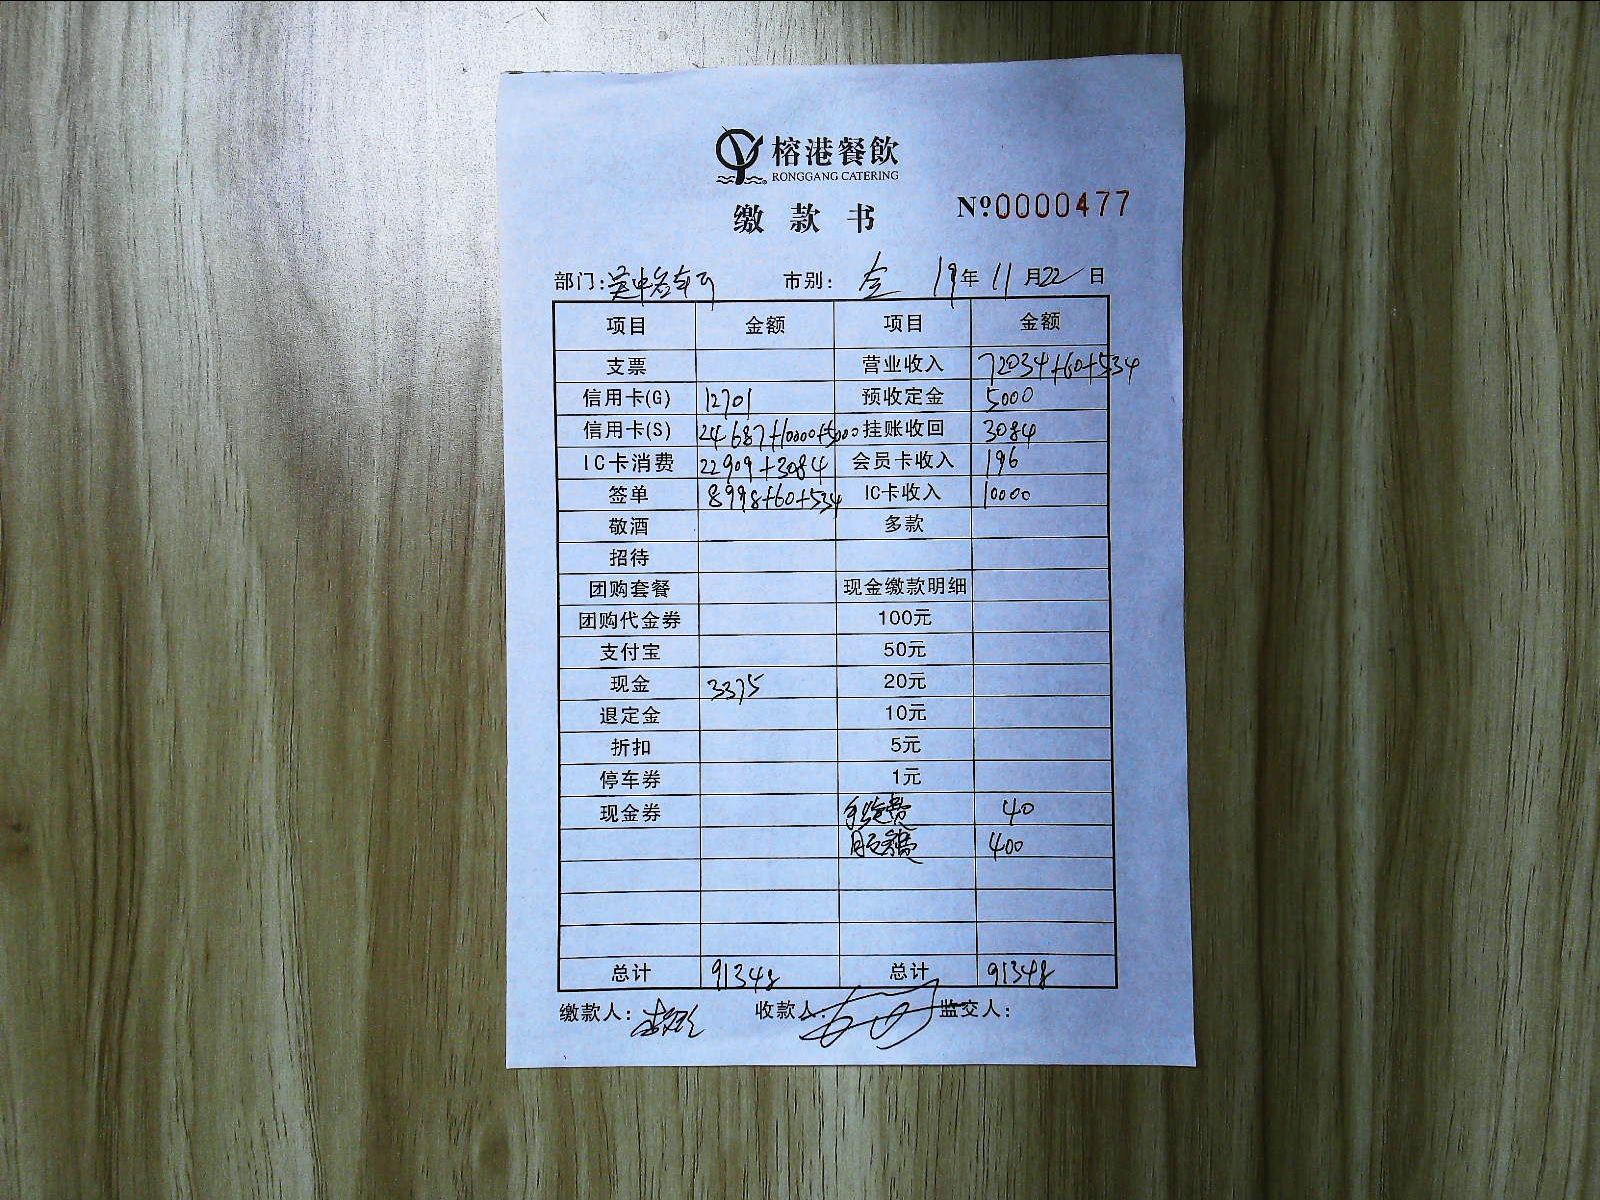 榕港餐飲
RONGGANG CATERING
缴款书 №0000477
部门: 市别: 全 19年11月22日
项目 金额 项目 金额
支票 营业收入 72034+60+534
信用卡(G) 12701 预收定金 5000
信用卡(S) 24687+10000+5000 挂账收回 3084
IC卡消费 22909+3084 会员卡收入 196
签单 8998+60+534 IC卡收入 10000
敬酒 多款
招待
团购套餐 现金缴款明细
团购代金券 100元
支付宝 50元
现金 3375 20元
退定金 10元
折扣 5元
停车券 1元
现金券 手续费 40
费 400
总计 91348 总计 91348
缴款人: 收款人: 监交人: